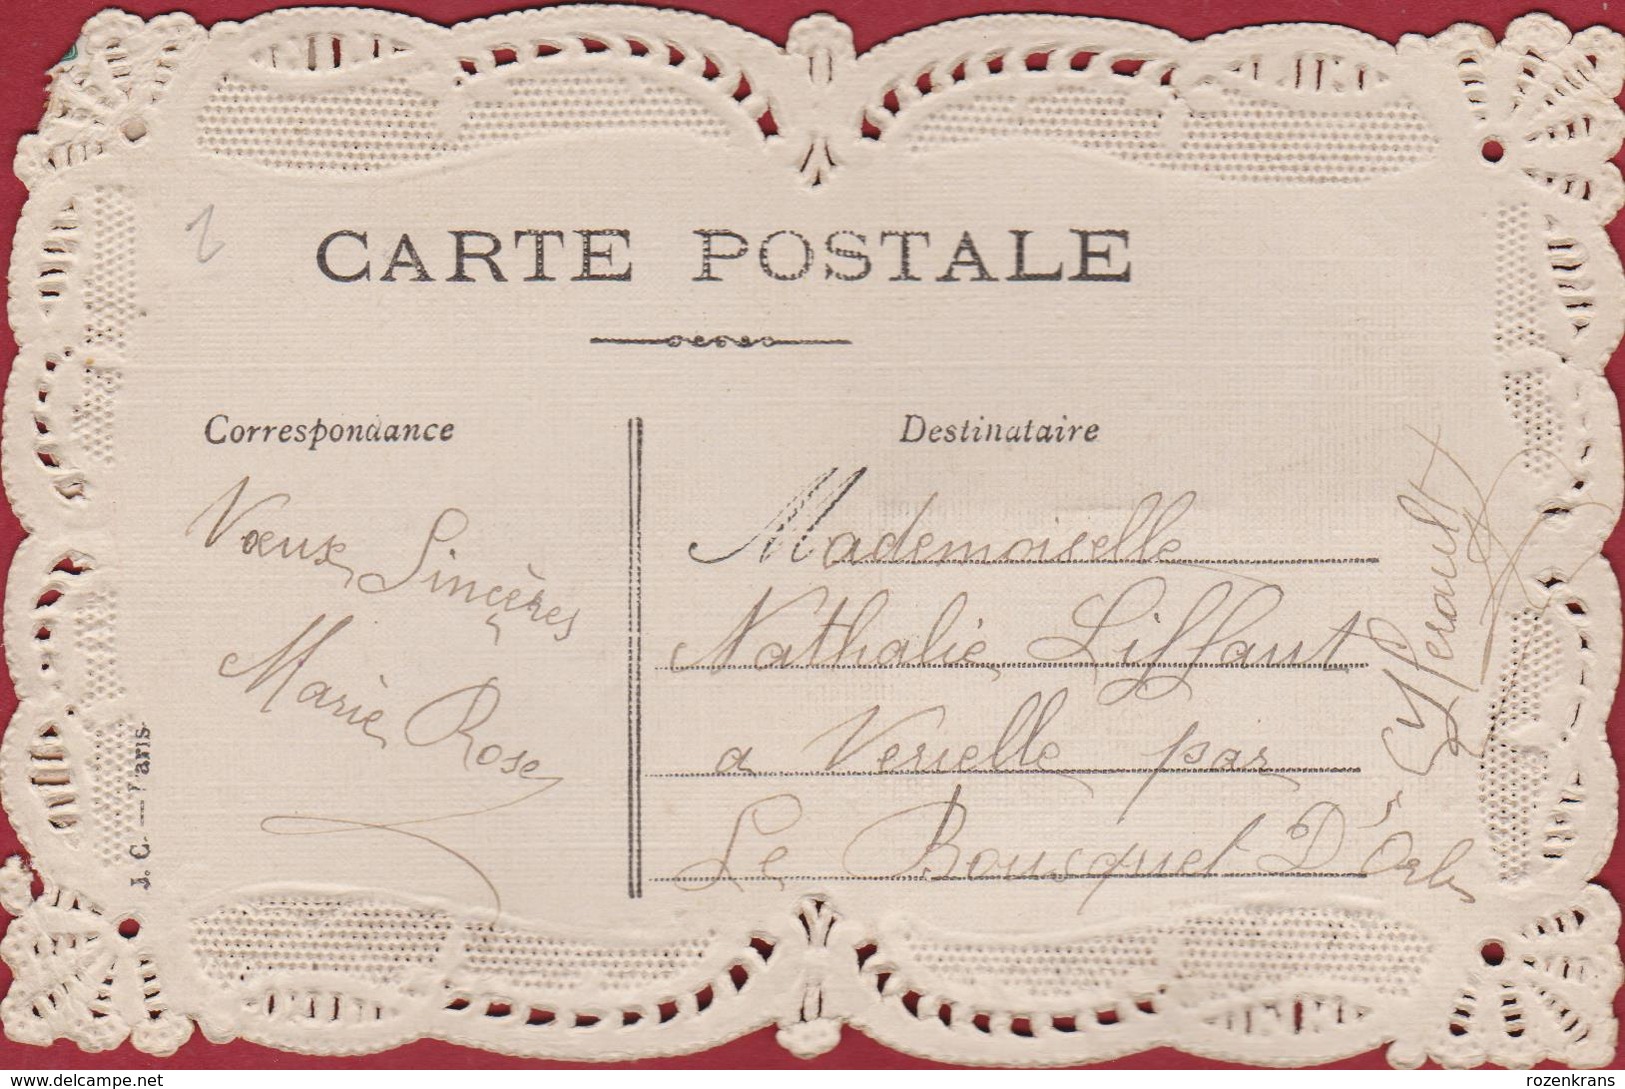 CARTE POSTALE
Correspondance
Vœux Sincères
Marie Rose
Destinataire
Mademoiselle
Nathalie Liffaut
a Verielle par
Le Bousquet D'Orb
Hérault
J. C. — Paris
www.delcampe.net
rozenkrans